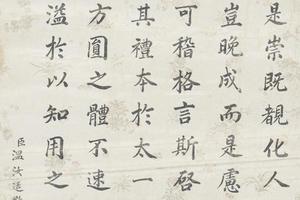 是崇既覩化人
豈晚成而是慮
可稽格言斯啓
其禮本於太一
方圓之體不速
溢於以知用之
臣溫汝适